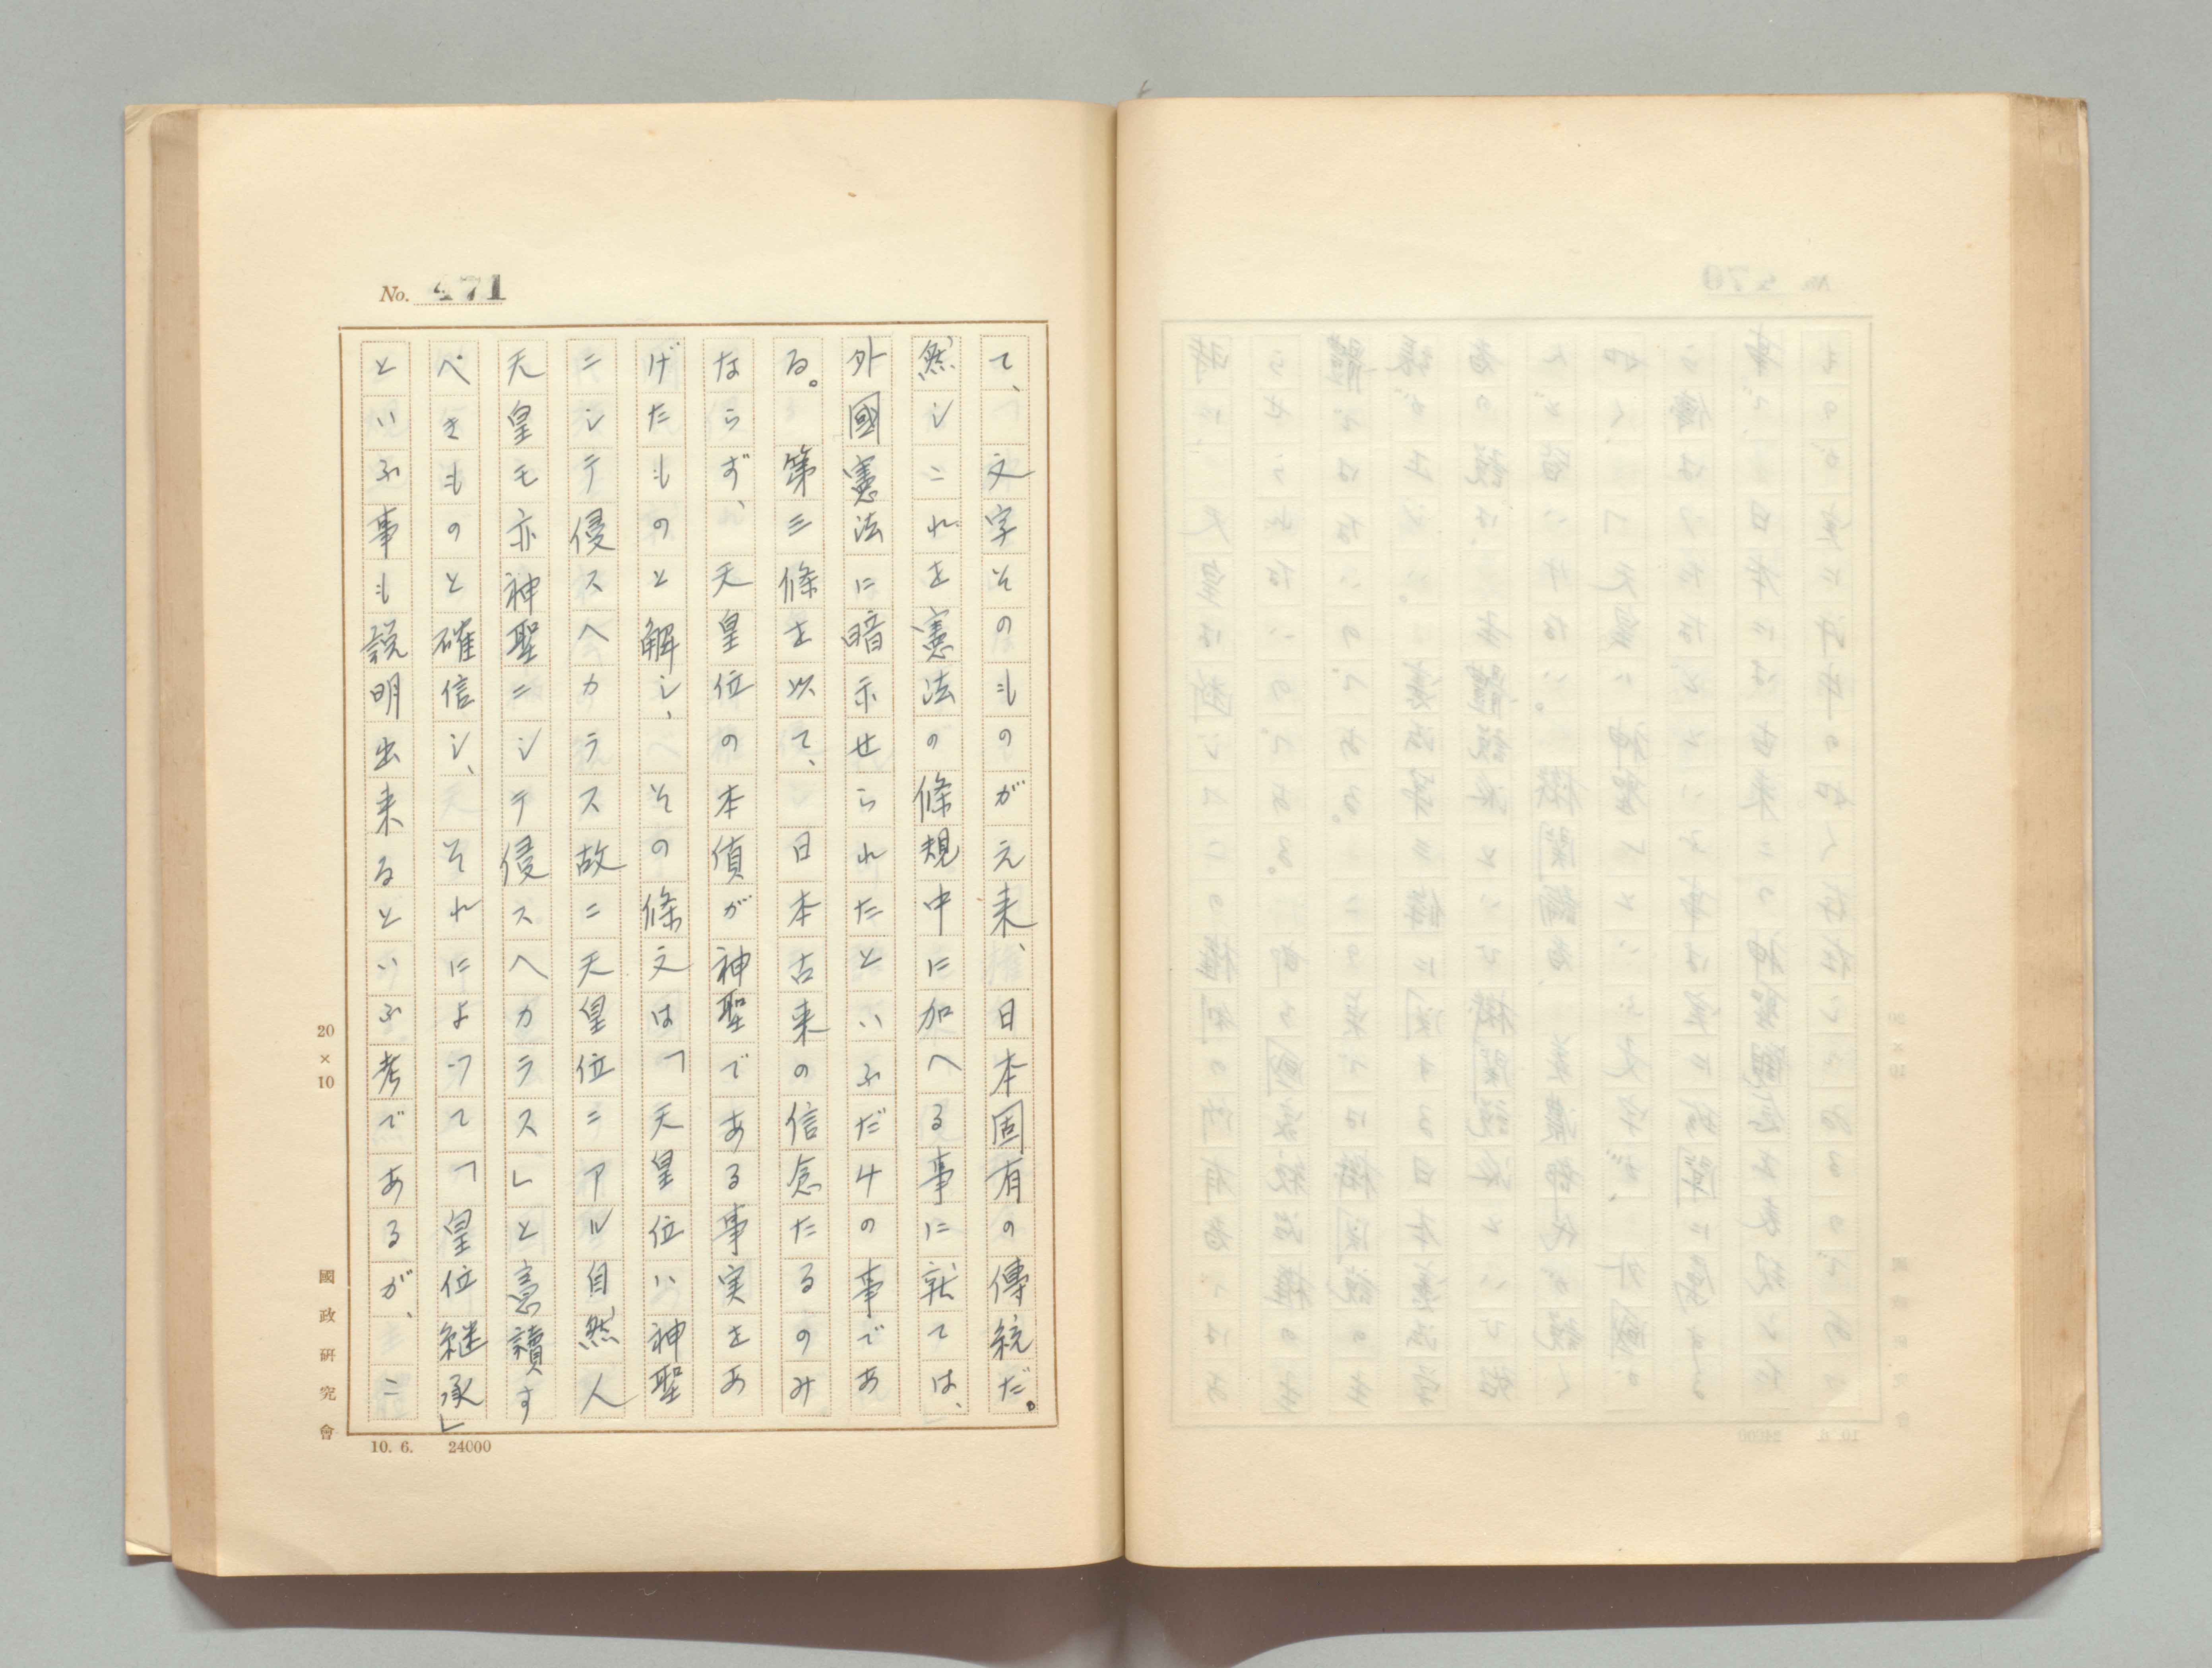 No. 471
て、 文字そのものが元来、日本固有の傳統だ。
然しこれを憲法の條規中に加へる事に就ては、
外國憲法に暗示せられたといふだけの事であ
る。 第三條を以て、 日本古来の信念たるのみ
ならず、 天皇位の本質が神聖である事実をあ
げたものと解し、 その條文は「天皇位ハ神聖
ニシテ侵スヘカラス故ニ天皇位ニアル自然人
天皇モ亦神聖ニシテ侵スヘカラス」と意讀す
べきものと確信し、 それによつて「皇位継承」
といふ事も説明出来るといふ考であるが、 こ
20×10
國政研究會
10. 6. 24000